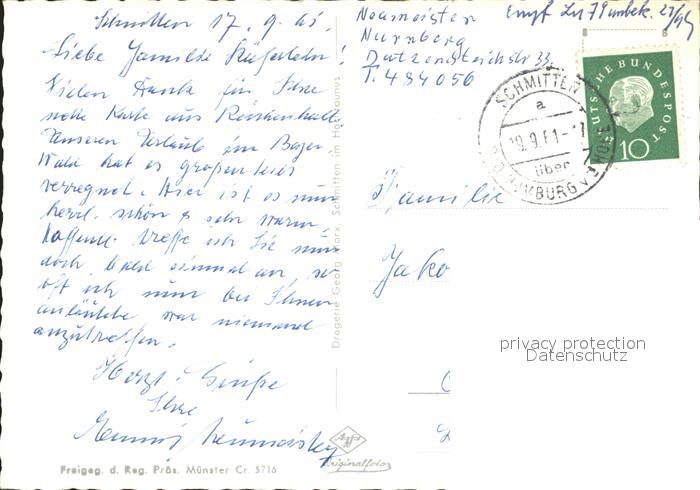 Schmitten 17. 9. 61.
Liebe Familie
Vielen Dank für Ihre
nette Karte aus Reichenhall
Unseren Urlaub im Bayer
Wald hat es großenteils
verregnet. Hier ist es nun
herrl. schön & sehr warm.
Hoffentl. treffe ich Sie nun
doch bald einmal an, so
oft ich nun bei Ihnen
anläutete war niemand
anzutreffen.
Herzl. Grüße
Ihre
Neumeister
Nürnberg
Dutzendteichstr 33
T. 484056
Empf
unbek.
SCHMITTEN
a
19.9.61-17
über
BAD HOMBURG v.d.HÖHE
DEUTSCHE BUNDESPOST
10
Familie
Jako
privacy protection
Datenschutz
Drogerie Georg Marx, Schmitten im Hochtaunus
Agfa
Originalfoto
Freigeg. d. Reg. Präs. Münster Cr. 5716